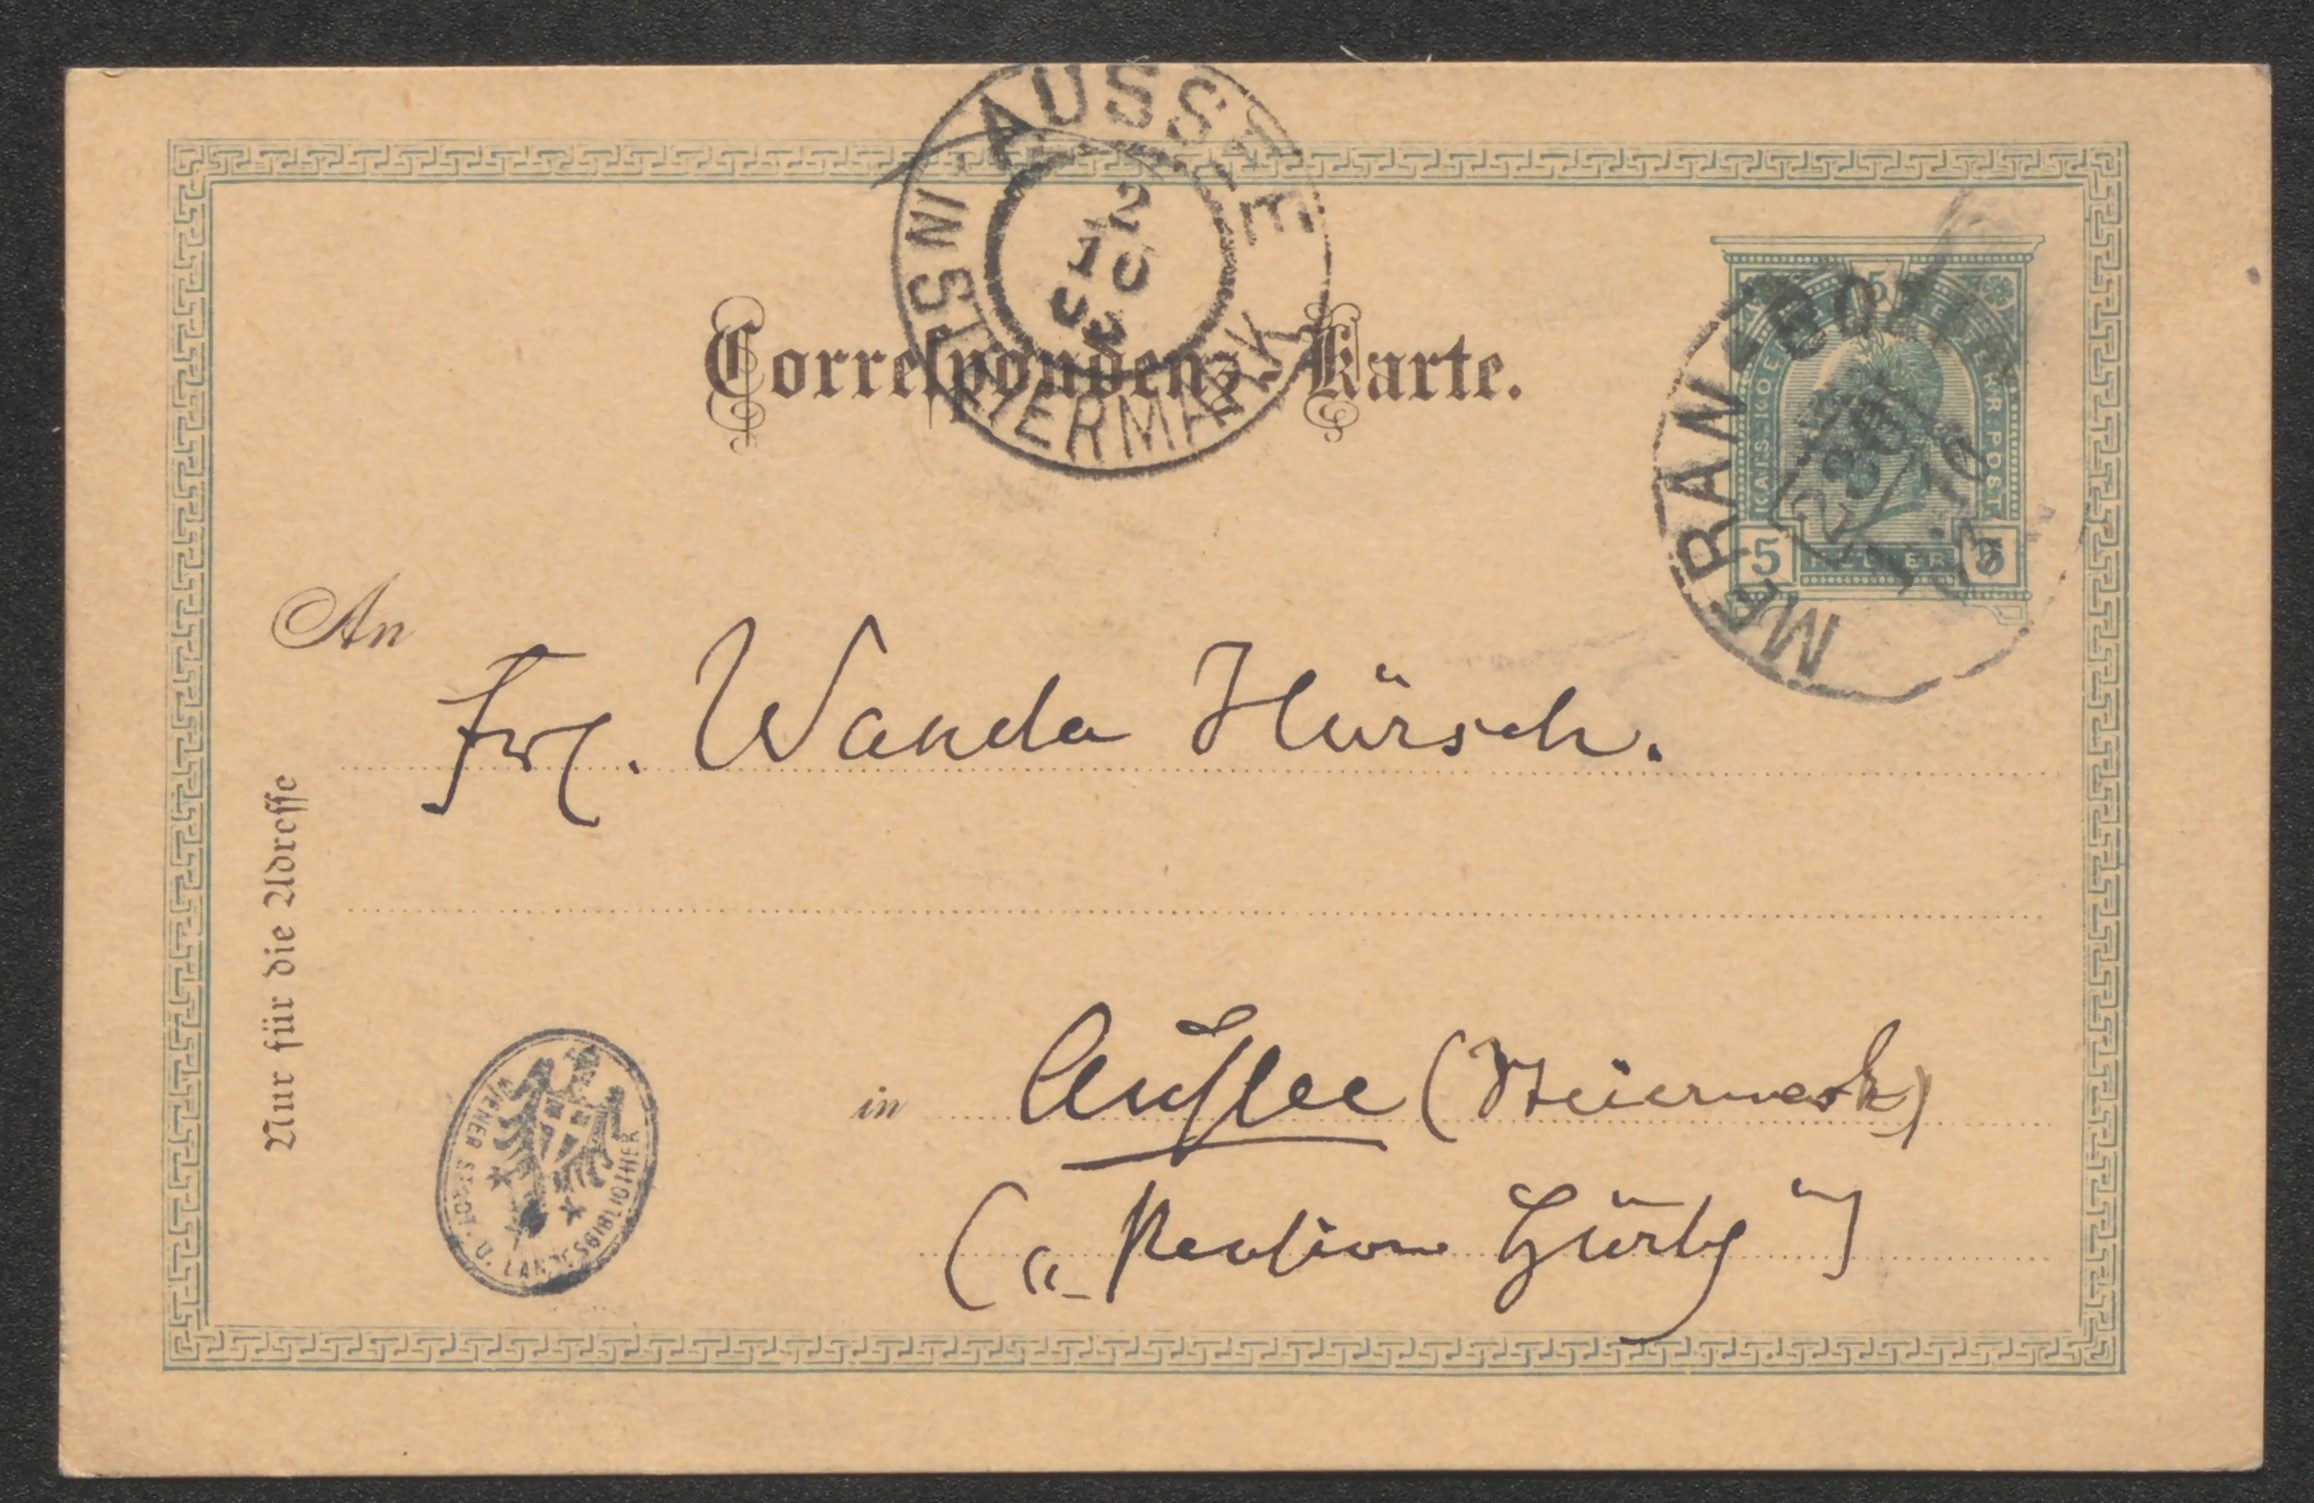 AUSSEE
IN STEIERMARK
2
10
03
Correspondenz-Karte.
MERAN BOZEN
5
KAIS KOE
TERR. POST
5 HELLER 5
An
Frl. Wanda Hürsch.
Nur für die Adresse
in Aussee (Steiermark)
(„Pension Hürsch“)
WIENER STADT. U. LANDESBIBLIOTHEK